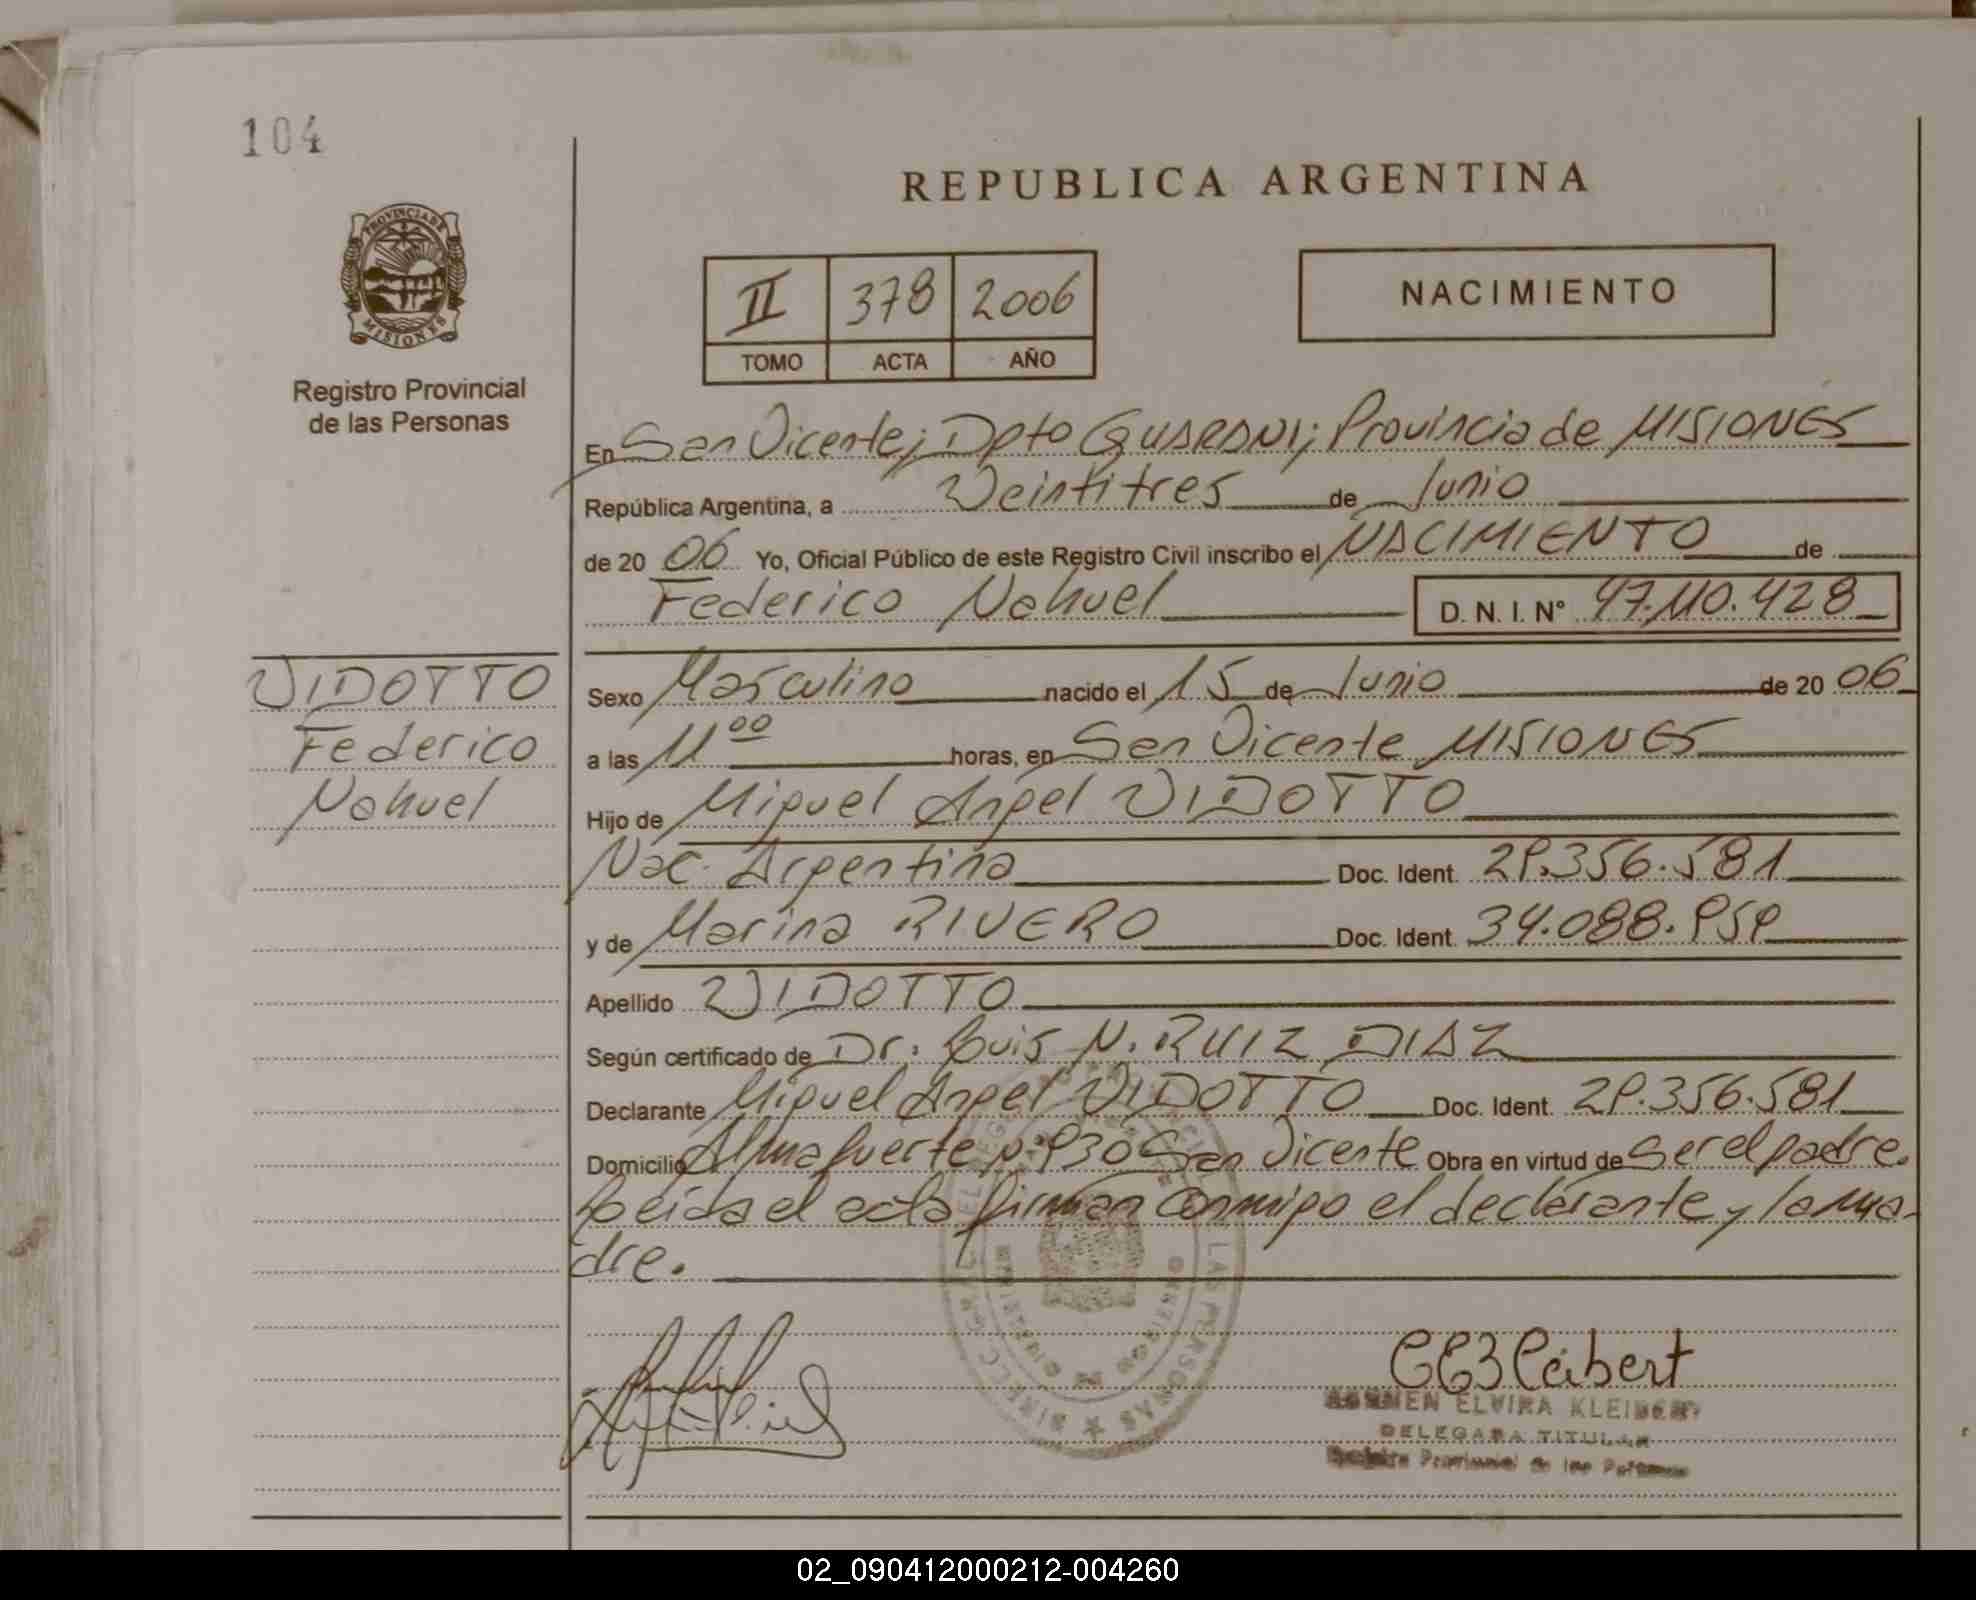 104
REPUBLICA ARGENTINA
PROVINCIA DE
MISIONES
II 378 2006
TOMO ACTA AÑO
NACIMIENTO
Registro Provincial
de las Personas
En San Vicente; Dpto GUARANI; Provincia de MISIONES
República Argentina, a Veintitres de Junio
de 20 06 Yo, Oficial Público de este Registro Civil inscribo el NACIMIENTO de
Federico Nahuel D. N. I. N° 47.110.428
VIDOTTO
Federico
Nahuel
Sexo Masculino nacido el 15 de Junio de 20 06
a las 11 00 horas, en San Vicente MISIONES
Hijo de Miguel Angel VIDOTTO
Nac. Argentina Doc. Ident. 29.356.581
y de Marina RIVERO Doc. Ident. 34.088.959
Apellido VIDOTTO
Según certificado de Dr. Luis N. RUIZ DIAZ
Declarante Miguel Angel VIDOTTO Doc. Ident. 29.356.581
Domicilio Almafuerte Nº 930 San Vicente Obra en virtud de Ser el padre.
Leída el acta firman conmigo el declarante y la ma-
dre.
LAS PERSONAS
CE3 Leibert
CARMEN ELVIRA KLEIBERT
DELEGADA TITULAR
Registro Provincial de las Personas
02_090412000212-004260